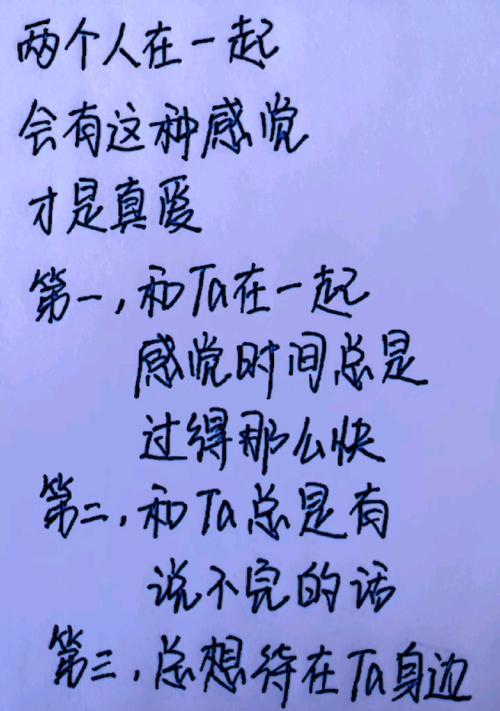 两个人在一起
会有这种感觉
才是真爱
第一,和Ta在一起
感觉时间总是
过得那么快
第二,和Ta总是有
说不完的话
第三,总想待在Ta身边